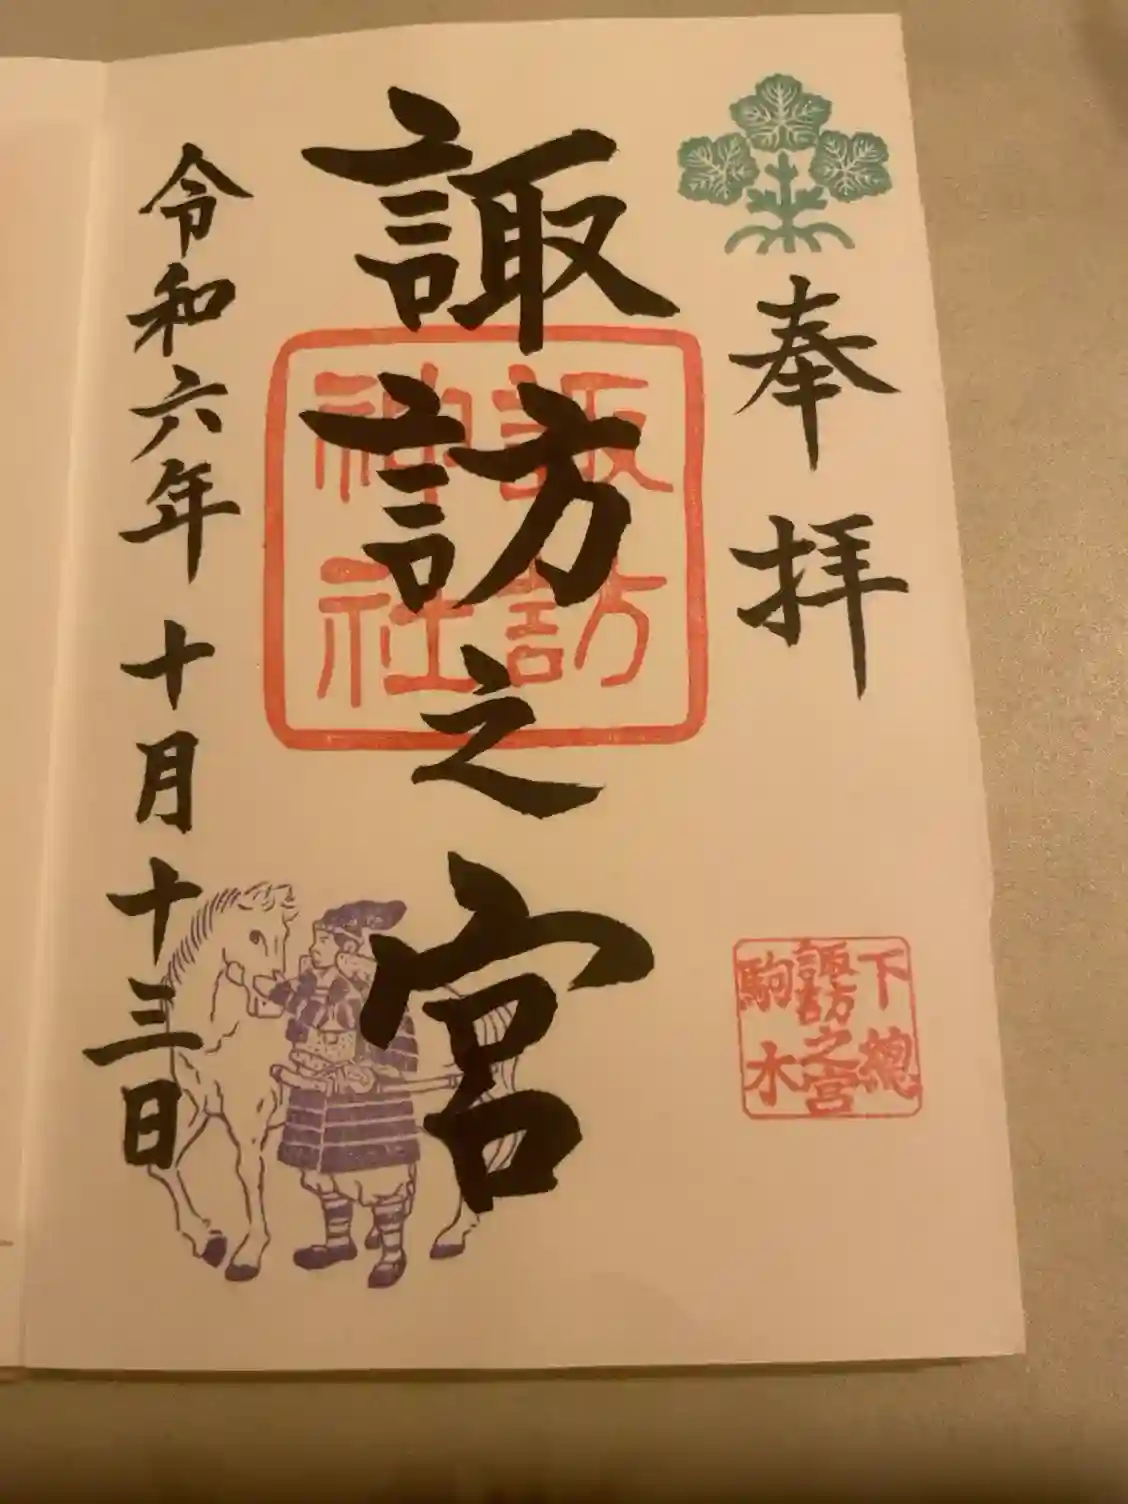 奉拝
下總
諏訪之宮
駒木
諏訪之宮
諏訪
神社
令和六年十月十三日